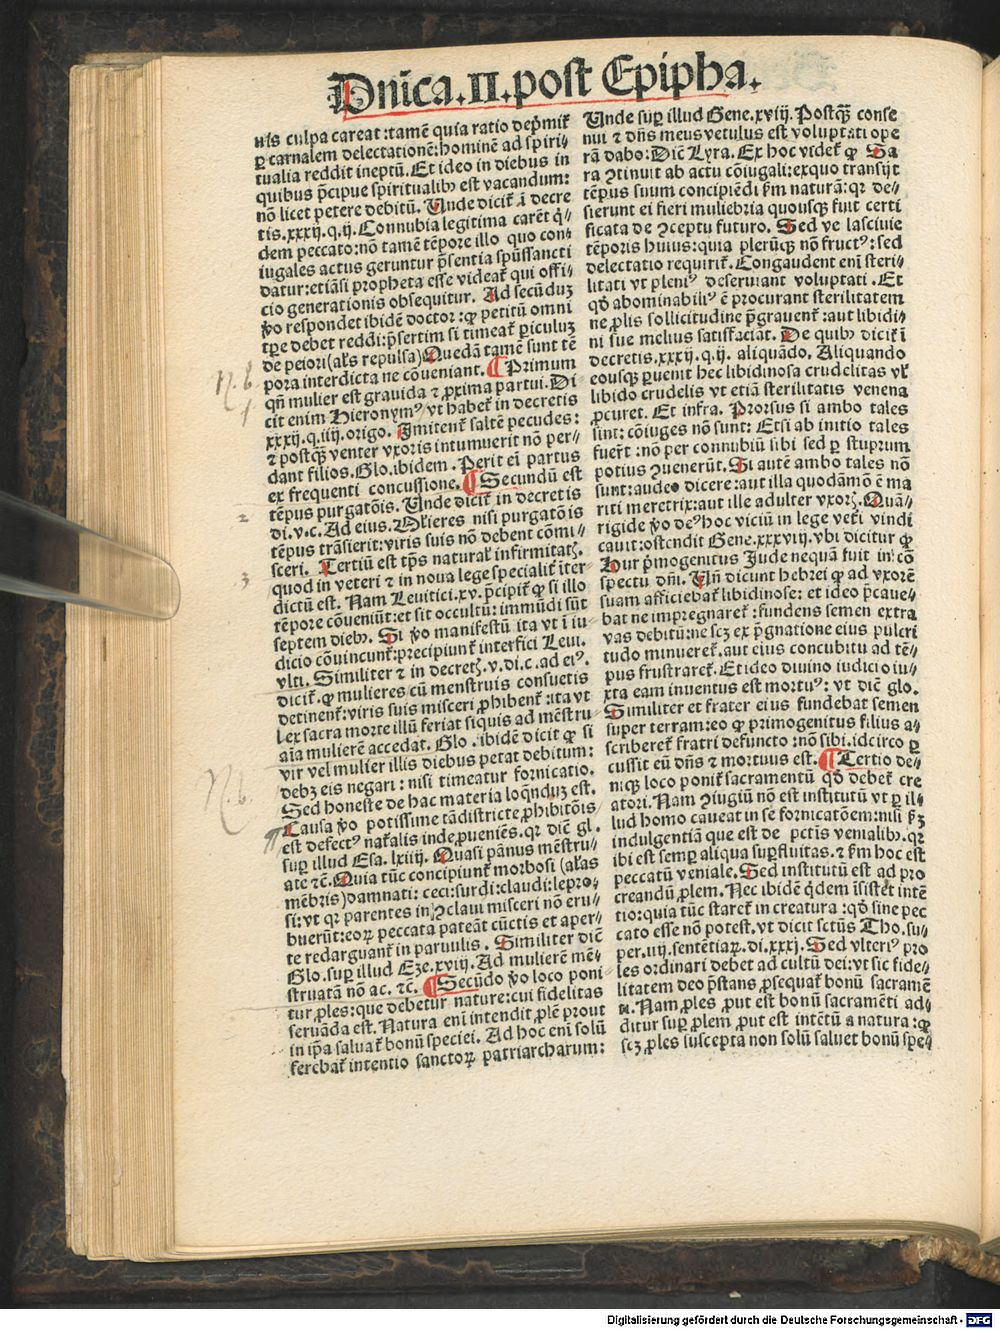 Dnīca.II.post Epipha.
uis culpa careat:tamē quia ratio dep̄mit᷑
ꝑ carnalem delectationē:hominē ad spiri⸗
tualia reddit ineptū. Et ideo in diebus in
quibus p̄cipue spiritualibꝰ est vacandum:
nō licet petere debitū. Unde dicit᷑ ī decre
tis.xxxij.q.ij. Connubia legitima carēt q̇⸗
dem peccato:nō tamē tēpore illo quo con⸗
iugales actus geruntur p̄sentia spūssancti
datur:etiāsi propheta esse videat᷑ qui offi⸗
cio generationis obsequitur. Ad secūduꝫ
ꝟo respondet ibidē doctor:ꝙ petitū omni
tꝑe debet reddi:p̄sertim si timeat᷑ ꝑiculuꝫ
de peiori(al's repulsa)Quedā tamē sunt tē
pora interdicta ne cōueniant. ¶ Primum
qn̄ mulier est grauida ⁊ ꝓxima partui. Di
cit enim Hieronymꝰ vt habet᷑ in decretis
xxxij.q.iiij.origo. Imitent᷑ saltē pecudes:
⁊ postqꝫ venter vxoris intumuerit nō per⸗
dant filios. Glo. ibidem. Perit eī partus
ex frequenti concussione. ¶ Secundū est
tēpus purgatōis. Unde dicit᷑ in decretis
di.v.c. Ad eius. Mlieres nisi purgatōis
tēpus trāsierit:viris suis nō debent cōmi⸗
sceri. Tertiū est tp̄s natural' infirmitatꝭ.
quod in veteri ⁊ in noua lege specialit᷑ iter
dictū est. Nam Leuitici.xv.p̄cipit᷑ ꝙ si illo
tēpore cōueniūt:et sit occultū:immūdi sūt
septem diebꝰ. Si ꝟo manifestū ita vt ī iu⸗
dicio cōuincunt᷑:precipiunt᷑ interfici Leui.
vlti. Similiter ⁊ in decretꝭ.v.di.c.ad eiꝰ.
dicit᷑. ꝙ mulieres cū menstruis consuetis
detinent᷑:viris suis misceri ꝓhibent᷑:ita vt
lex sacra morte illū feriat si quis ad mēstru
atā mulierē accedat. Glo. ibidē dicit ꝙ si
vir vel mulier illis diebus petat debitum:
debꝫ eis negari: nisi timeatur fornicatio.
Sed honeste de hac materia loq̄nduꝫ est.
Causa ꝟo potissime tādistricte ꝓhibitōis
est defectꝰ nat᷑alis inde ꝓueniēs. qr diē gl.
suꝑ illud Esa. lxiiij. Quasi pānus mēstru⸗
ate ⁊c̄. Quia tūc concipiunt᷑ morbosi (al'as
mēbris)damnati: ceci:surdi:claudi:lepro⸗
si:vt qr parentes in ꝯclaui misceri nō eru⸗
buerūt:eoꝝ peccata pateāt cūctis et aper⸗
te redarguant᷑ in paruulis. Similiter diē
Glo. suꝑ illud Eze.xviij. Ad mulierē mē⸗
struatā nō ac. ⁊c̄. ¶ Secūdo ꝟo loco poni⸗
tur ꝓles:que debetur nature:cui fidelitas
seruāda est. Natura enī intendit ꝓlē prout
in ip̄a saluat᷑ bonū speciei. Ad hoc enī solū
ferebat᷑ intentio sanctoꝝ patriarcharum:
Unde suꝑ illud Gene.xviij. Postqꝫ conse
nui ⁊ dn̄s meus vetulus est voluptati ope
rā dabo: Diē Lyra. Ex hoc videt᷑ ꝙ Sa
ra ꝯtinuit ab actu cōiugali:exquo transijt
tēpus suum concipiēdi fm̄ naturā:qr de⸗
sierunt ei fieri muliebria quousqꝫ fuit certi
ficata de ꝯceptu futuro. Sed ve lasciuie
tēporis huius:quia plerūqꝫ nō fructꝰ: sed
delectatio requirit᷑. Congaudent enī steri⸗
litati vt pleniꝰ deseruiant voluptati. Et
qd̄ abominabiliꝰ ē procurant sterilitatem
ne ꝓlis sollicitudine p̄grauent᷑:aut libidi⸗
ni sue melius satisfaciāt. De quibꝰ dicit᷑ ī
decretis.xxxij.q.ij. aliquādo. Aliquando
eousqꝫ ꝑuenit hec libidinosa crudelitas vl'
libido crudelis vt etiā sterilitatis venena
ꝓcuret. Et infra. Prorsus si ambo tales
sint: cōiuges nō sunt: Etsi ab initio tales
fuer̄t: nō per connubiū sibi sed ꝑ stuprum
potius ꝯuenerūt. Si autē ambo tales nō
sunt:audeo dicere:aut illa quodāmō ē ma
riti meretrix:aut ille adulter vxorꝭ. Quā⸗
rigide ꝟo deꝰ hoc viciū in lege veti vindi
cauit:ostendit Gene.xxxviij.vbi dicitur ꝙ
Hur p̄mogenitus Jude nequā fuit in cō
spectu dn̄i. Un̄ dicunt hebrei ꝙ ad vxorē
suam afficiebat᷑ libidinose: et ideo p̄caue⸗
bat ne impregnaret᷑:fundens semen extra
vas debitū:ne scꝫ ex p̄gnatione eius pulcri
tudo minueret᷑.aut eius concubitu ad tē⸗
pus frustraret᷑. Et ideo diuino iudicio iu⸗
xta eam inuentus est mortuꝰ: vt diē glo.
Similiter et frater eius fundebat semen
super terram:eo ꝙ primogenitus filius a⸗
scriberet᷑ fratri defuncto:nō sibi.idcirco ꝑ
cussit eū dn̄s ⁊ mortuus est. ¶ Tertio de⸗
niqꝫ loco ponit᷑ sacramentū qd̄ debet᷑ cre
atori. Nam ꝯiugiū nō est institutū vt ꝑ il⸗
lud homo caueat in se fornicatōem:nisi fꝫ
indulgentiā que est de pctis venialibꝰ. qr
ibi est semꝑ aliqua suꝑfluitas.⁊ fm̄ hoc est
peccatū veniale. Sed institutū est ad pro
creandū ꝓlem. Nec ibidē q̇dem īsistēt intē
tio:quia tūc staret᷑ in creatura:qd̄ sine pec
cato esse nō potest. vt dicit sctūs Tho. su⸗
per.iiij.sentētiaꝝ.di.xxxj. Sed vlteriꝰ pro
les ordinari debet ad cultū dei:vt sic fide⸗
litatem deo p̄stans ꝓsequat᷑ bonū sacramē
ti. Nam ꝓles ꝓut est bonū sacramēti ad⸗
ditur suꝑ ꝓlem ꝓut est intētū a natura:ꝙ
scꝫ ꝓles suscepta non solū saluet bonū spe⸗
N.b.
1
2
3
N.b.
Digitalisierung gefördert durch die Deutsche Forschungsgemeinschaft - DFG